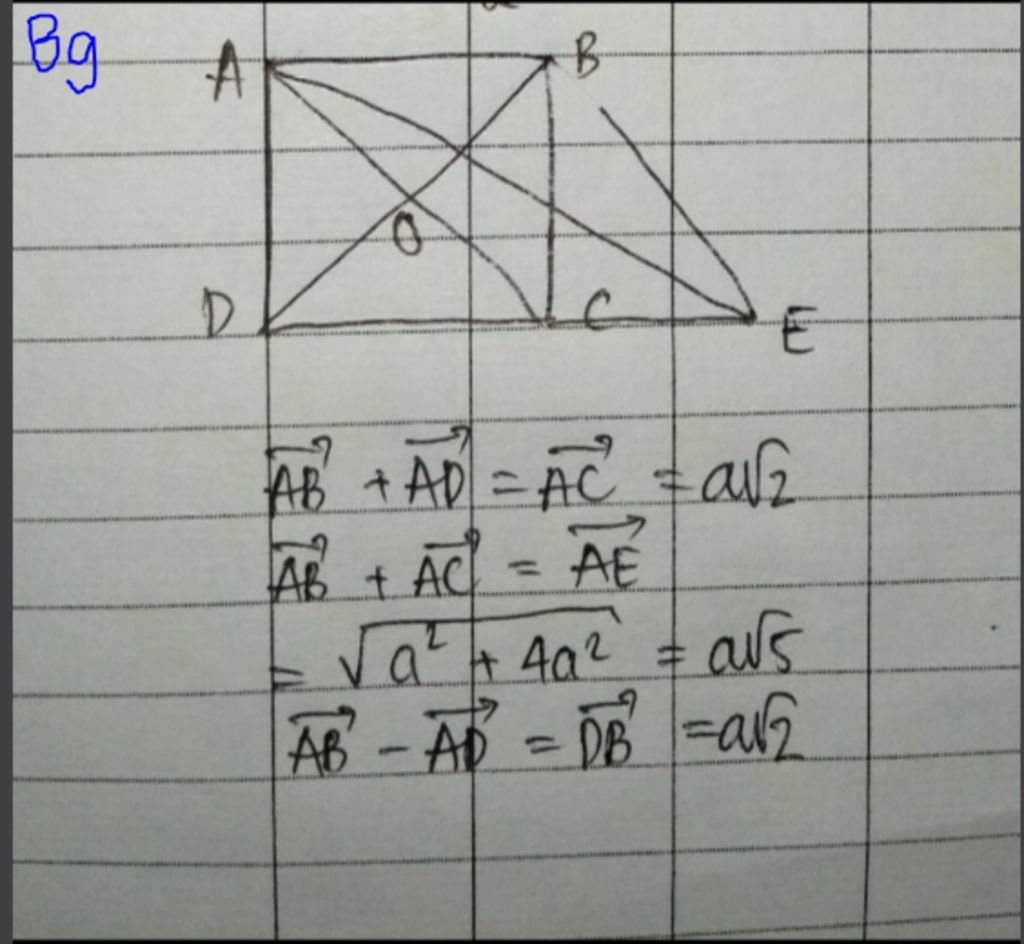 Bg
A B
O
D C E
$\overrightarrow{AB} + \overrightarrow{AD} = \overrightarrow{AC} = a\sqrt{2}$
$\overrightarrow{AB} + \overrightarrow{AC} = \overrightarrow{AE}$
$= \sqrt{a^2 + 4a^2} = a\sqrt{5}$
$\overrightarrow{AB} - \overrightarrow{AD} = \overrightarrow{DB} = a\sqrt{2}$